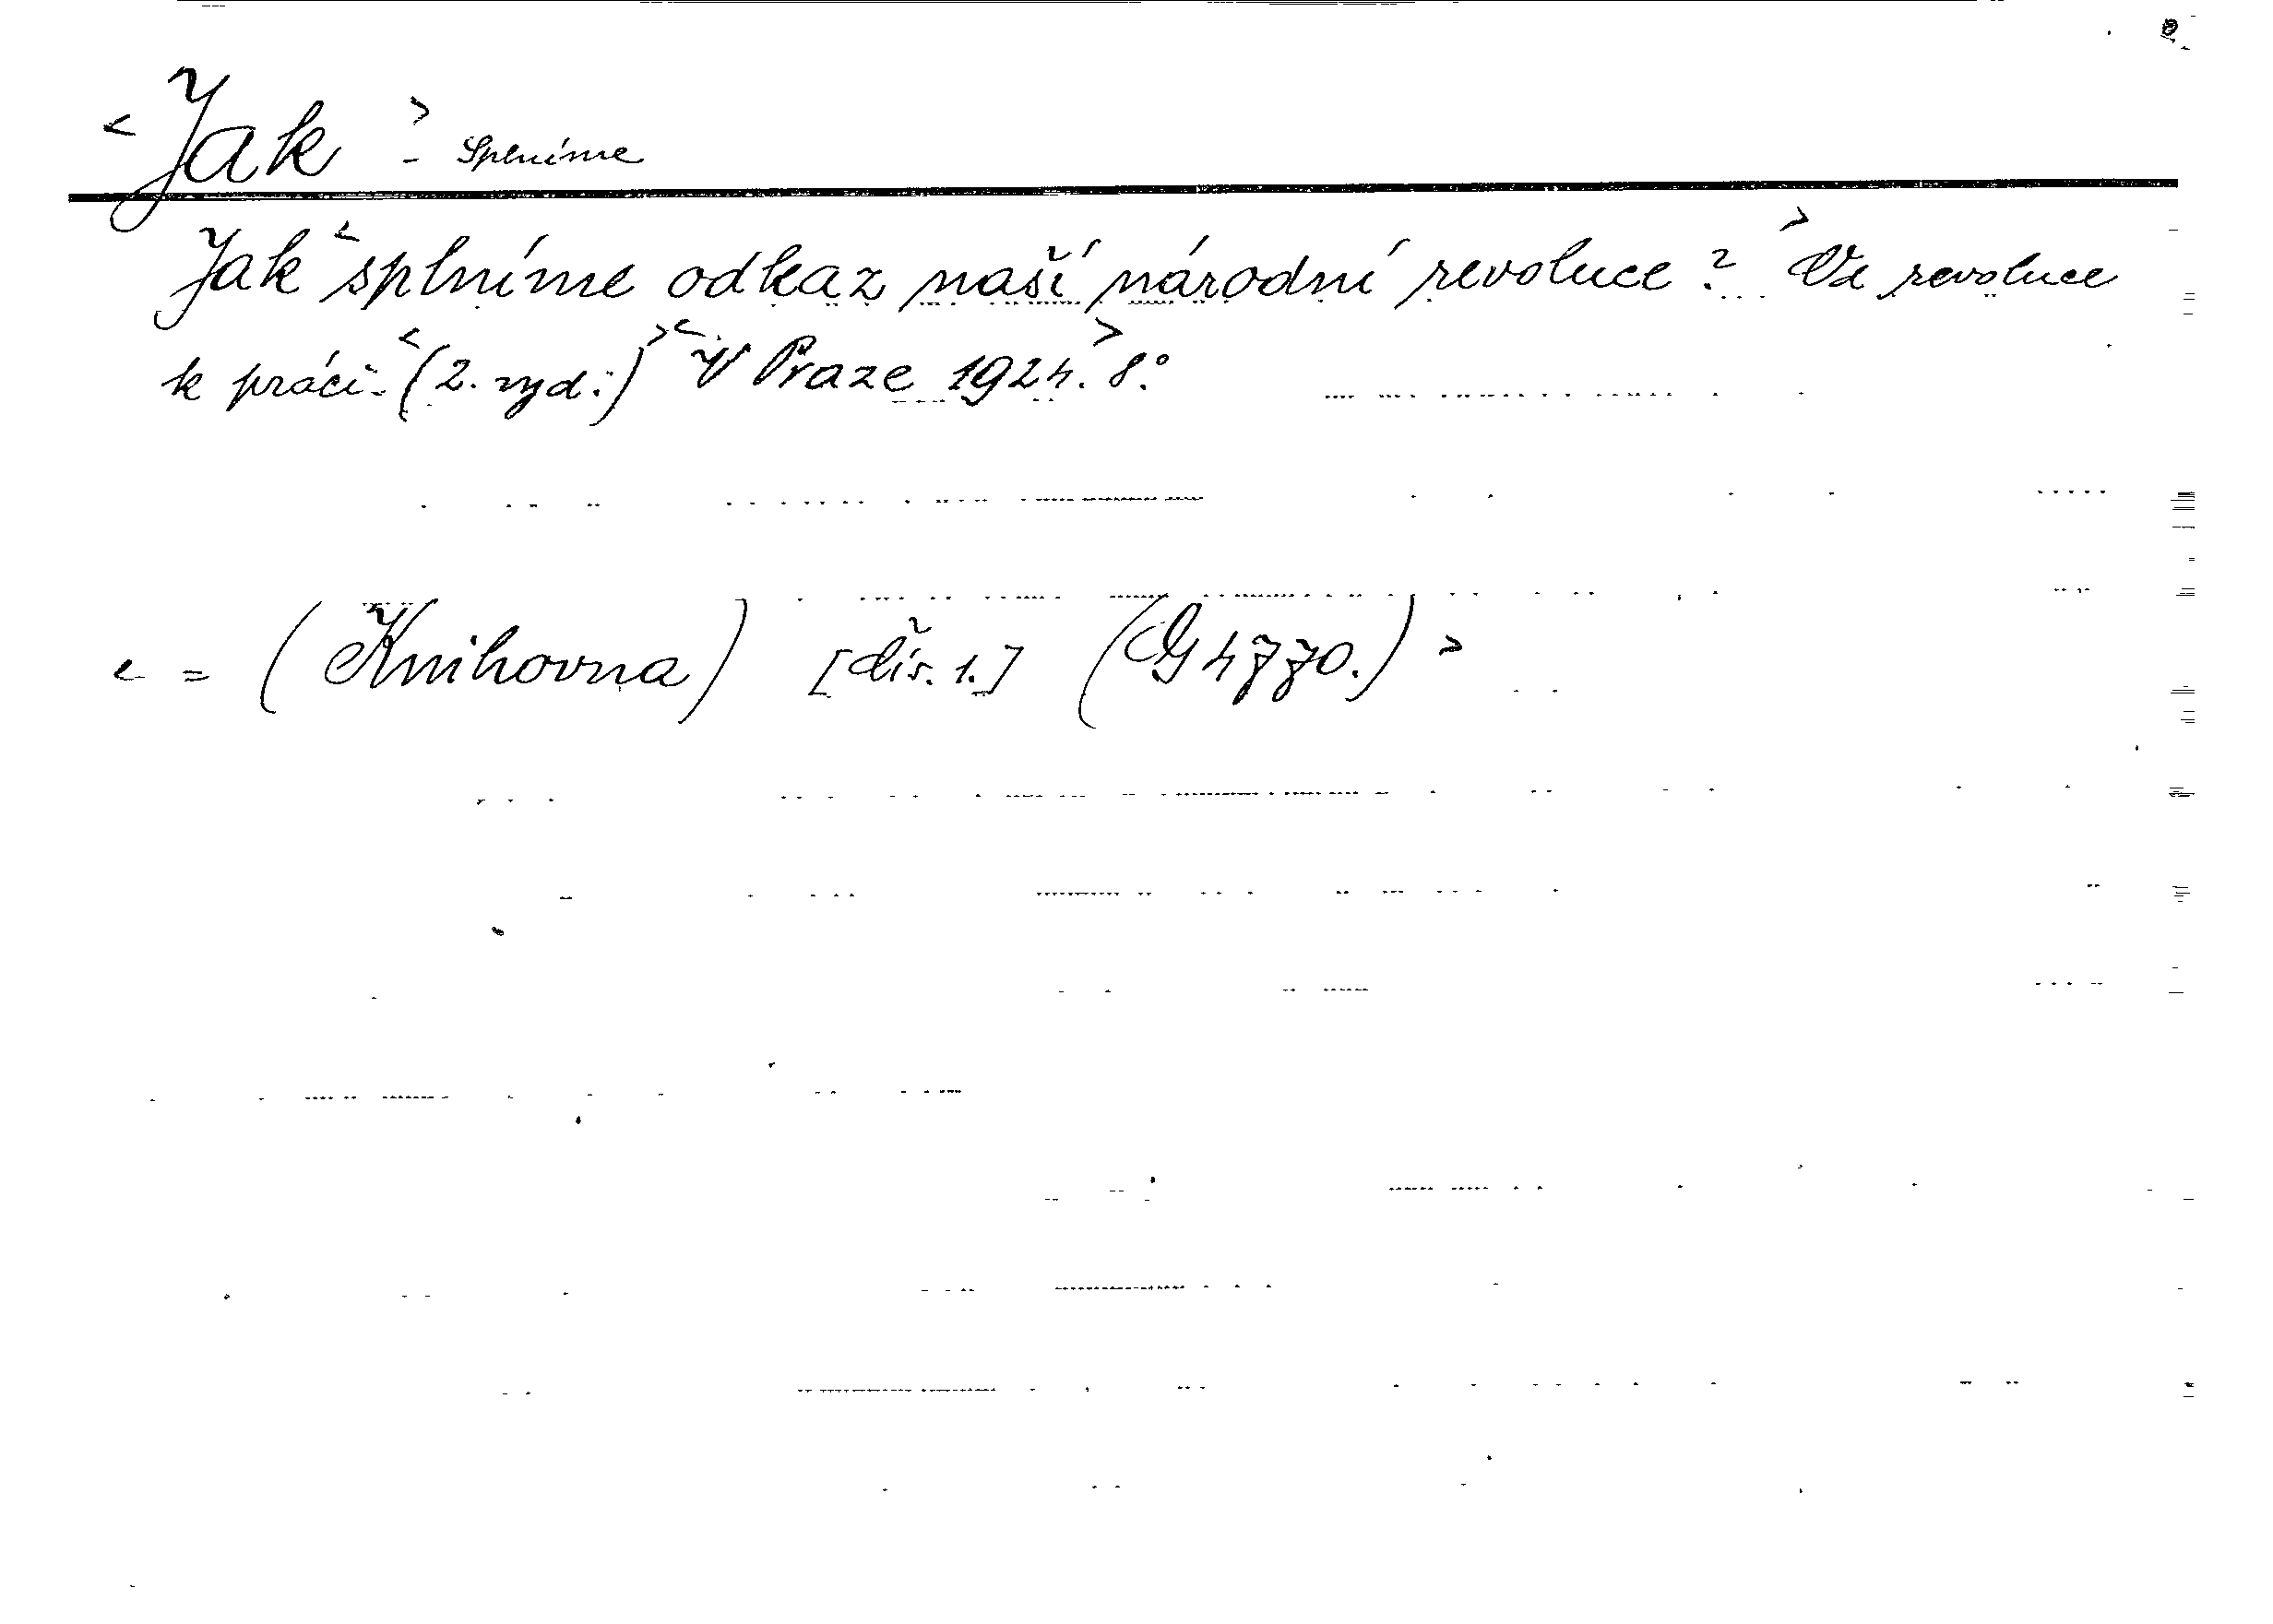 <Jak> - splníme
Jak <splníme odkaz naší národní revoluce?> Od revoluce
k práci. <(2. vyd.)> <V Praze 1924.> 8.°
< = (Knihovna) [čís. 1.] (G 4770.) >